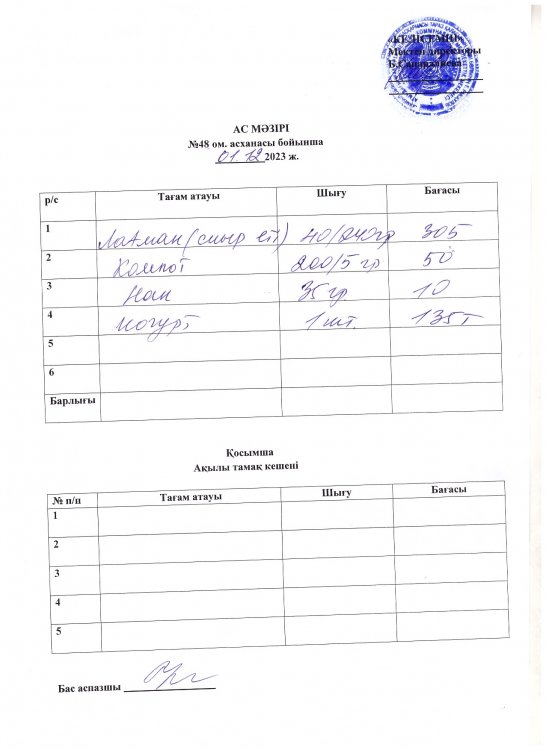 «КЕЛІСЕМІН»
Мектеп директоры
АС МӘЗІРІ
№48 ом. асханасы бойынша
01.12 2023 ж.
р/с Тағам атауы Шығу Бағасы
1 Лагман (сиыр еті) 40/240гр 305
2 Компот 200/5 гр 50
3 Нан 35 гр 10
4 Йогурт 1 шт. 135т
5
6
Барлығы
Қосымша
Ақылы тамақ кешені
№ п/п Тағам атауы Шығу Бағасы
1
2
3
4
5
Бас аспазшы